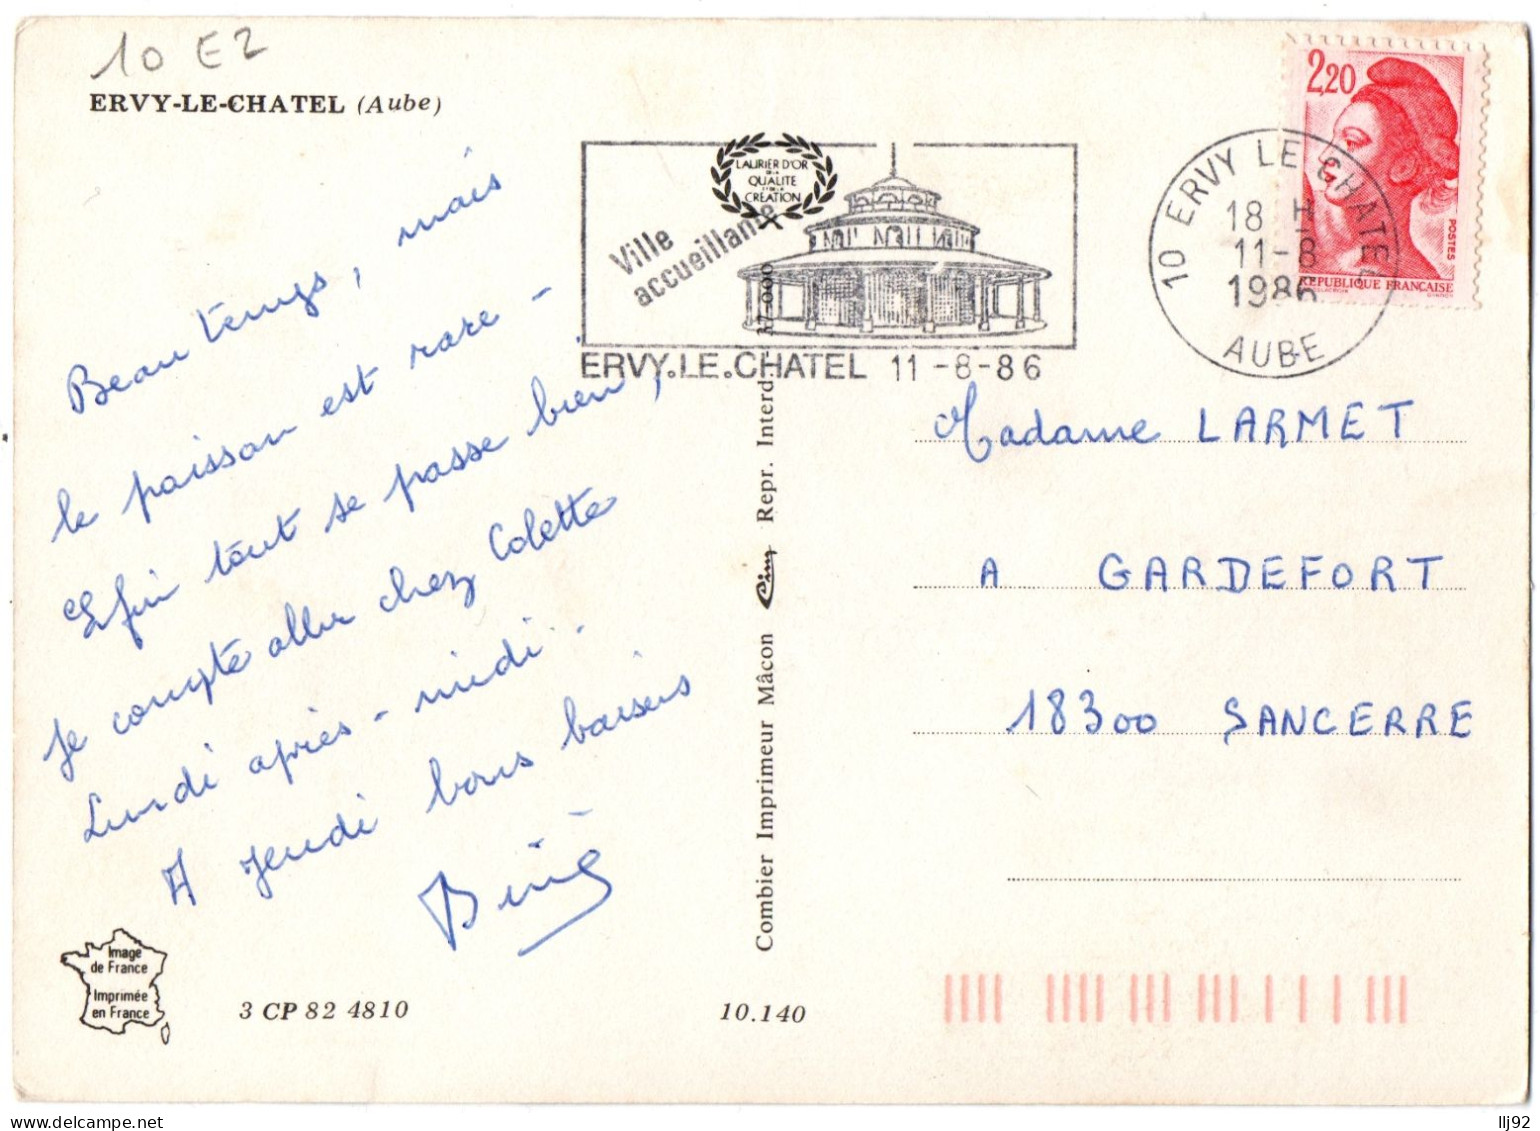 10 E2
ERVY-LE-CHATEL (Aube)
Beau temps, mais
le poisson est rare -
Enfin tout se passe bien,
Je compte aller chez Colette
Lundi après-midi.
A jeudi bons baisers
LAURIER D'OR
DE LA
QUALITE
ET DE LA
CREATION
Ville
accueillante
ERVY.LE.CHATEL 11-8-86
10 ERVY LE CHATEL
18 H
11-8
1986
AUBE
2,20
POSTES
REPUBLIQUE FRANÇAISE
Madame LARMET
A GARDEFORT
18300 SANCERRE
Combier Imprimeur Mâcon Cim Repr. Interd.
Image
de France
Imprimée
en France
3 CP 82 4810
10.140
llj92